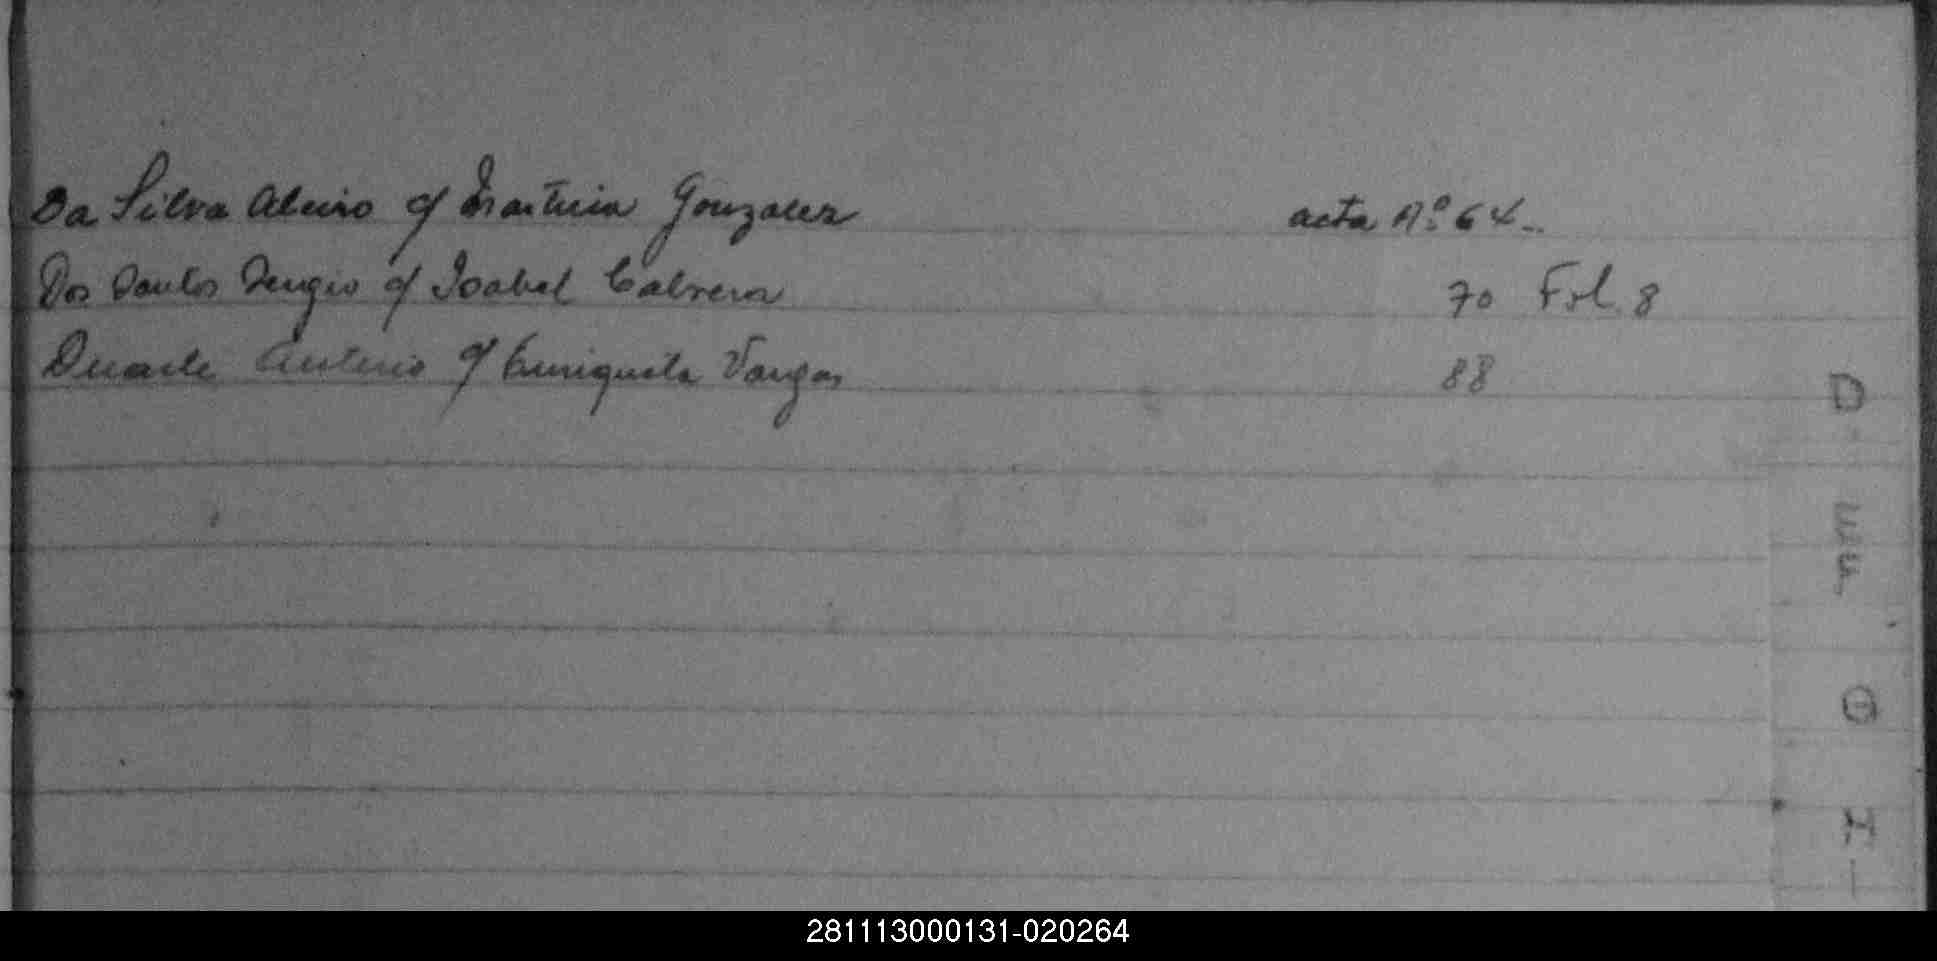 Da Silva Aleiro c/ Gonzalez acta Nº 64..
Dos Santos Sergio c/ Isabel Cabrera 70 Fol. 8
Duarte Antonio c/ Enriqueta Vargas 88
D
H
281113000131-020264